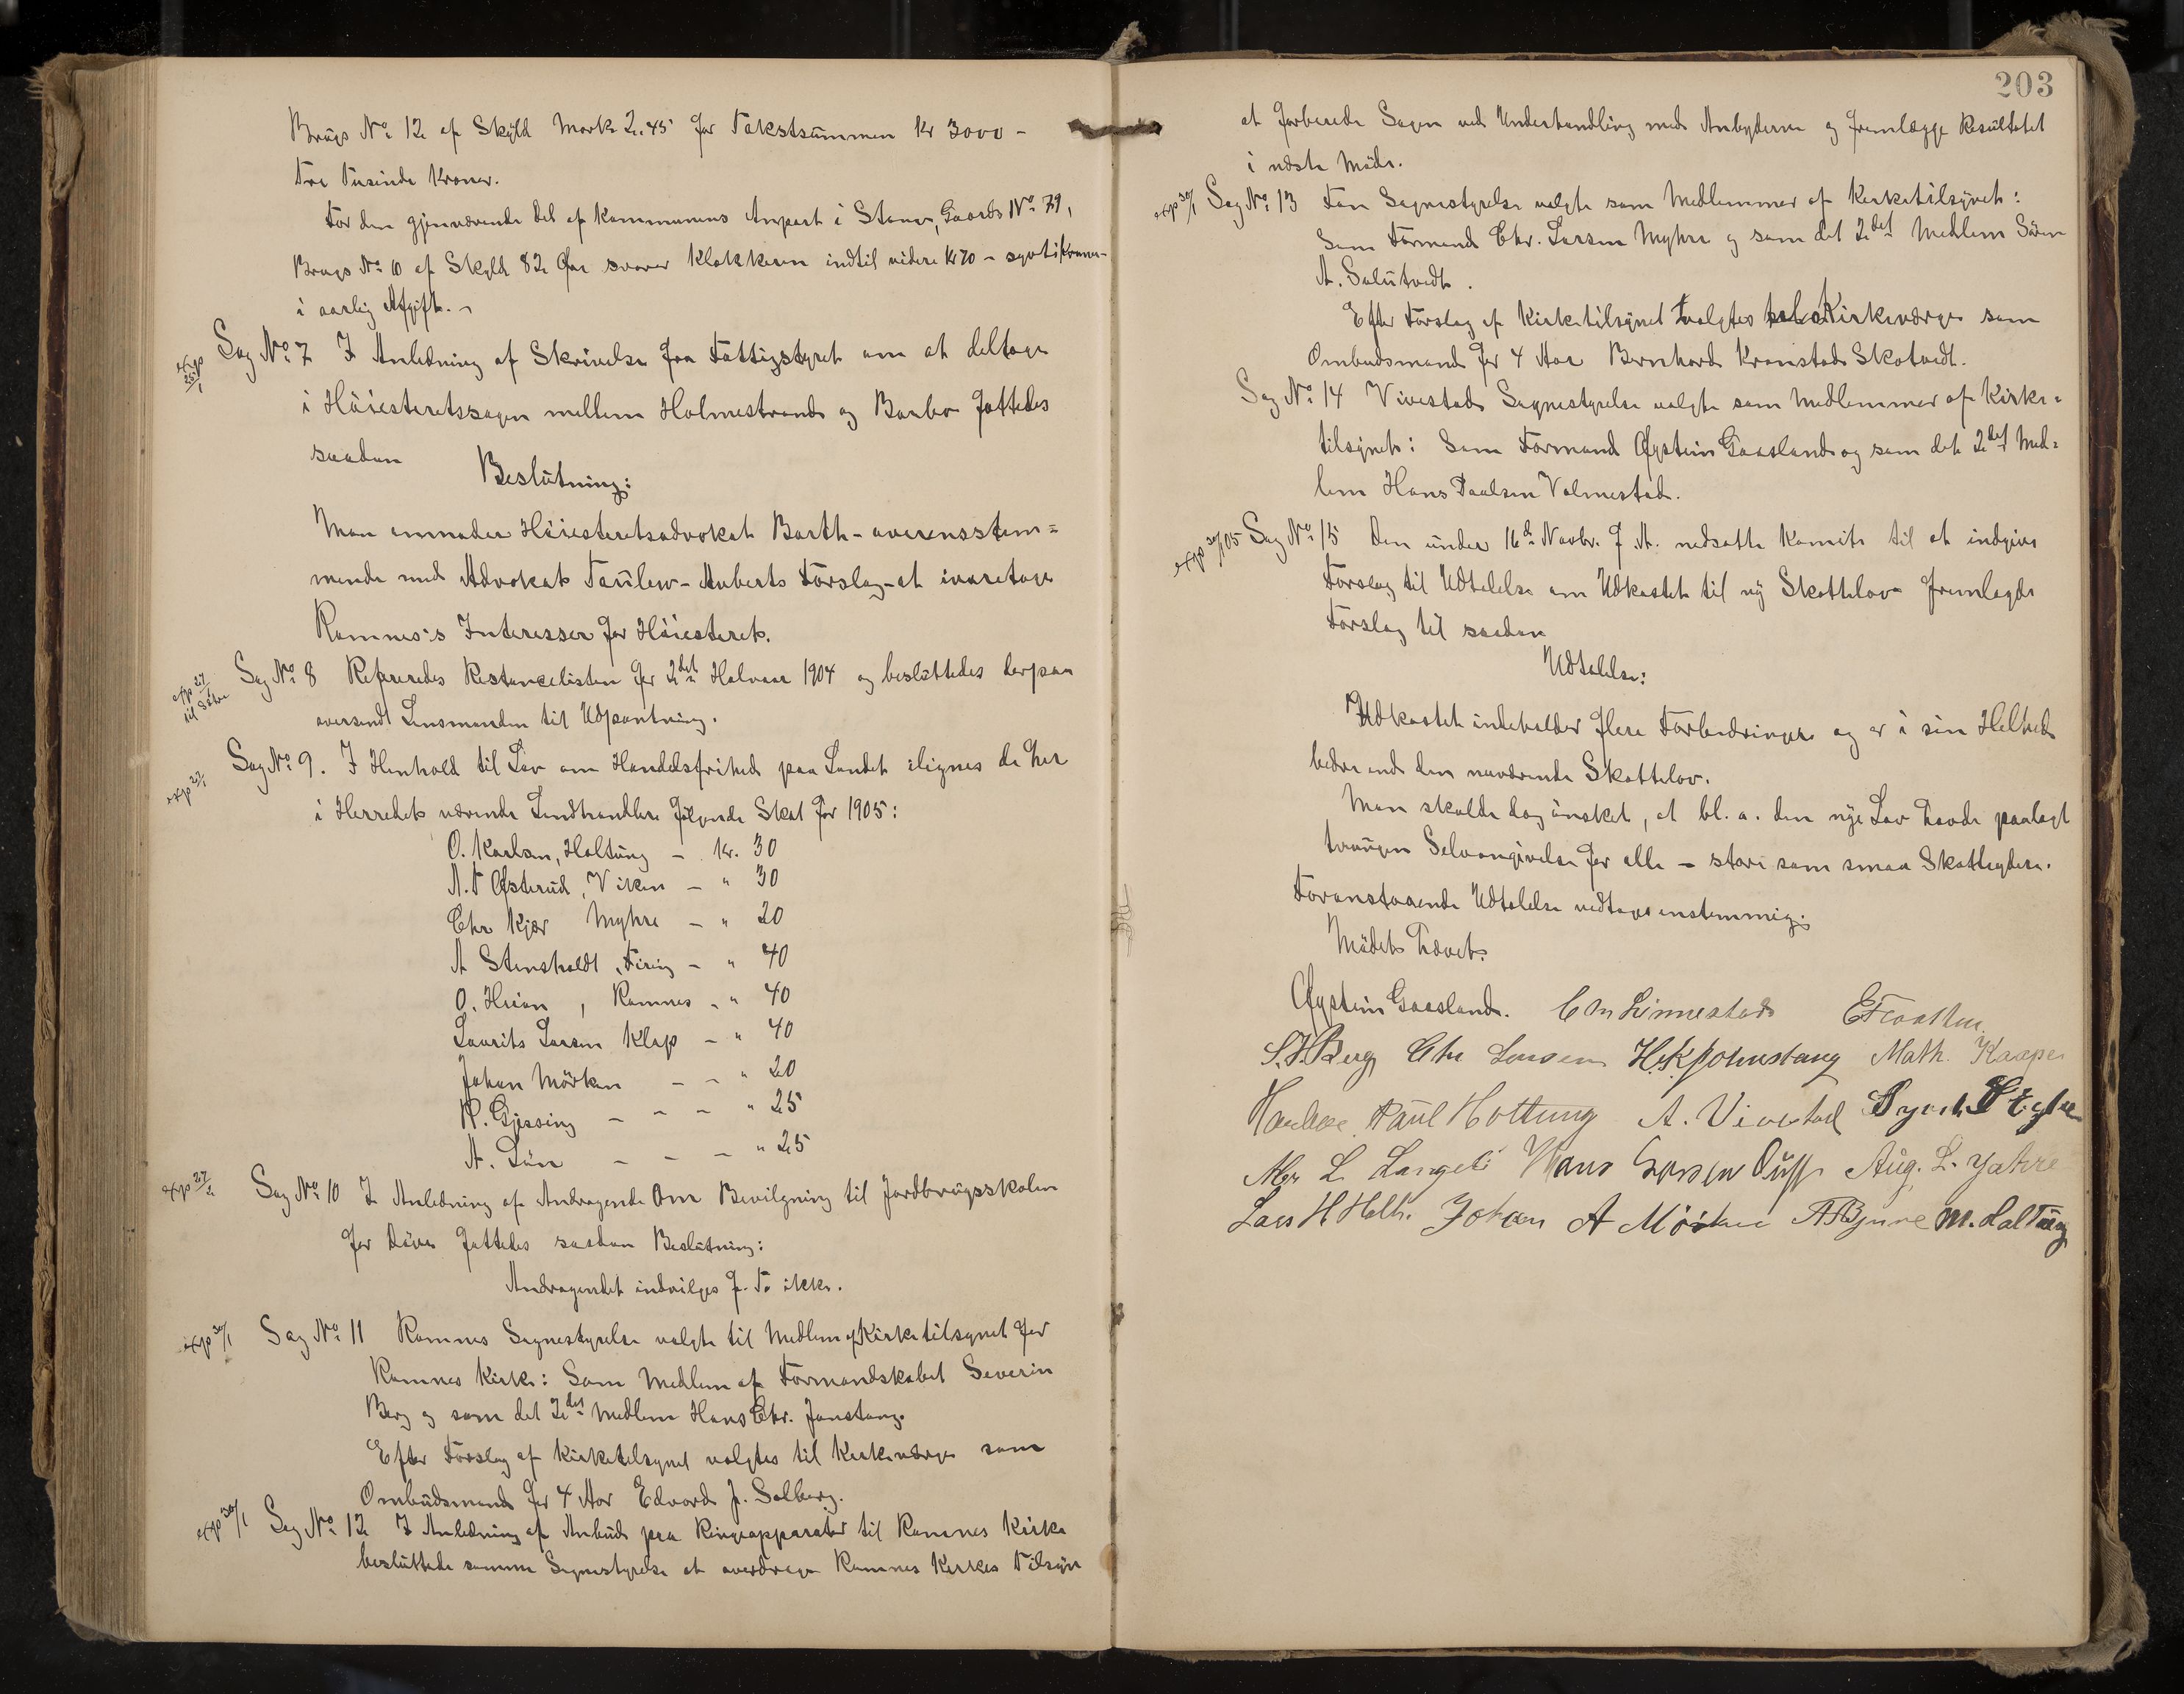 Brugs No. 12 af Skyld Mark 2.45 for Takstsummen Kr 3000 -
Tre Tusinde Kroner.
For den gjenværende Del af Kommunens Anpart i Stener, Gaards No. 79,
Brugs No. 10 af Skyld 82 Øre svarer Klokkeren indtil videre Kr 70 - sytti Kroner -
i aarlig Afgift. -
exp 25/1
Sag No. 7 I Anledning af Skrivelse fra Fattigstyret om at deltage
i Höiesteretssagen mellem Holmestrand og Barbo fattedes
saadan
Beslutning:
Man anmoder Höiesteretsadvokat Barth - overensstem=
mende med Advokat Faulew-Auberts Forslag - at ivaretage
Ramnes's Interesser for Höiesteret.
exp 27/1
Sag No. 8 Refereredes Restancelisten for 2det Halvaar 1904 og besluttedes derpaa
oversendt Lensmanden til Udpantning.
exp 27/1
Sag No. 9. I Henhold til Lov om Handelsfrihed paa Landet ilignes de her
i Herredet værende Landhandlere fölgende Skat for 1905:
O. Karlsen, Holtung - Kr. 30
A. F Østerud, Viken - " 30
Chr Kjær Myhre - " 20
A Stensholdt, Firing - " 40
O. Heian, Ramnes - " 40
Laurits Larsen Klap - " 40
Johan Mörken - - " 20
R. Gjessing - - - " 25
A. Lün - - - " 25
exp 27/2
Sag No. 10 I Anledning af Andragende om Bevilgning til Jordbrugsskolen
for Döve fattedes saadan Beslutning:
Andragendet indvilges f. T. ikke.
exp 30/1
Sag No. 11 Ramnes Sognestyrelse valgte til Medlem af Kirketilsynet for
Ramnes Kirke: Som Medlem af Formandskabet Severin
Berg og som det 2det Medlem Hans Chr. Jonstang.
Efter Forslag af Kirketilsynet valgtes til Kirkeværge som
Ombudsmand for 4 Aar Edvard J. Solberg.
exp 30/1
Sag No. 12 I Anledning af Anbud paa Ringeapparater til Ramnes Kirke
besluttede samme Sognestyrelse at overdrage Ramnes Kirkes Tilsyn
203
at forberede Sagen ved Underhandling med Anbyderne og fremlægge Resultatet
i næste Möde.
exp 30/1
Sag No. 13 Fon Sognestyrelse valgte som Medlemmer af Kirketilsynet:
Som Formand Chr. Larsen Myhre og som det 2det Medlem Sören
A. Solutvedt.
Efter Forslag af Kirketilsynet valgtes Kirkeværge som
Ombudsmand for 4 Aar Bernhard Kronstad Skotvedt.
Sag No. 14 Vivestad Sognestyrelse valgte som Medlemmer af Kirke=
tilsynet: Som Formand Øystein Gaasland og som det 2det Med=
lem Hans Paulsen Valmestad.
exp 30/1 05
Sag No. 15 Den under 16de Novbr. f. A. nedsatte Komite til at indgive
Forslag til Udtalelse om Udkastet til ny Skattelov fremlagde
Forslag til saadan
Udtalelse:
Udkastet indeholder flere Forbedringer og er i sin Helhed
bedre end den nuværende Skattelov.
Man skulde dog önsket, at bl. a. den nye Lov havde paalagt
tvungen Selvangivelse for alle - store som smaa Skatteydere.
Foranstaaende Udtalelse vedtages enstemmig.
Mödet hævet.
Øystein Gaasland. C M Linnestad
S. J. Berg Chr Larsen H. K. Johnstang Math. Kaape
Paul Holtung A. Vivestad
L. Langeli Hans Aug. L. Yahre
Lars H Holth. Johan A Mörken A Bjune M. Haltung